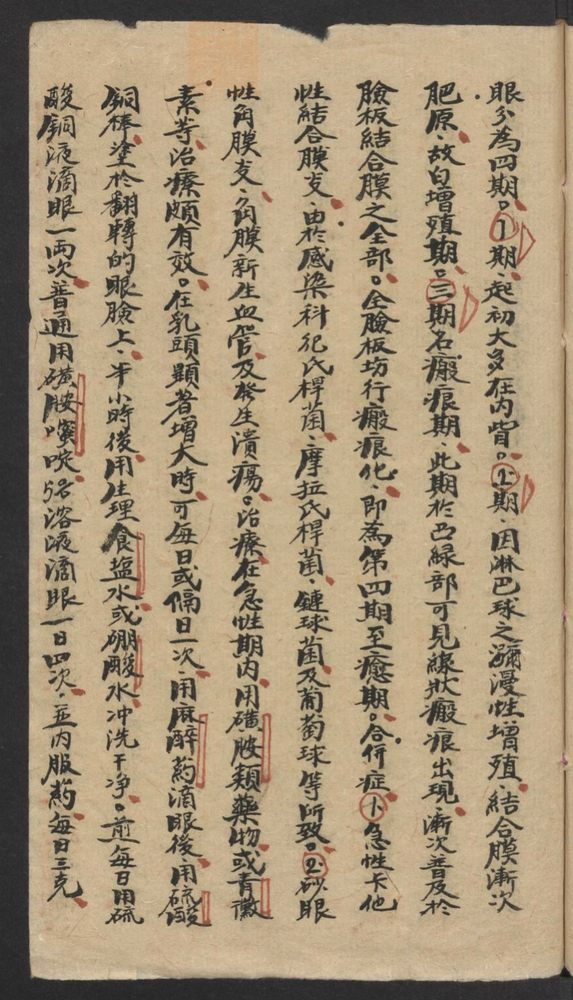 眼分為四期。①期、起初大多在内眥。②期、因淋巴球之瀰漫性增殖、結合膜漸次
肥原、故曰增殖期。三期名瘢痕期、此期於凸緣部可見線狀瘢痕出現、漸次普及於
瞼板結合膜之全部。全瞼板坊行瘢痕化、即為第四期至癒期。合併症①急性卡他
性結合膜支、由於感染科紀氏桿菌、摩拉氏桿菌、鏈球菌及葡萄球等所致。②砂眼
性角膜支、角膜新生血管、及發生潰瘍。治療在急性期内、用磺胺類藥物或青黴
素等治療頗有效。在乳頭顯著增大時、可每日或隔日一次、用麻醉葯滴眼後、用硫酸
銅棒塗於翻轉的眼瞼上、半小時後、用生理食塩水或硼酸水冲洗干净。前每日用硫
酸銅液滴眼一両次、普通用磺胺噻唍5%溶液滴眼一日四次、並内服葯每日三克、